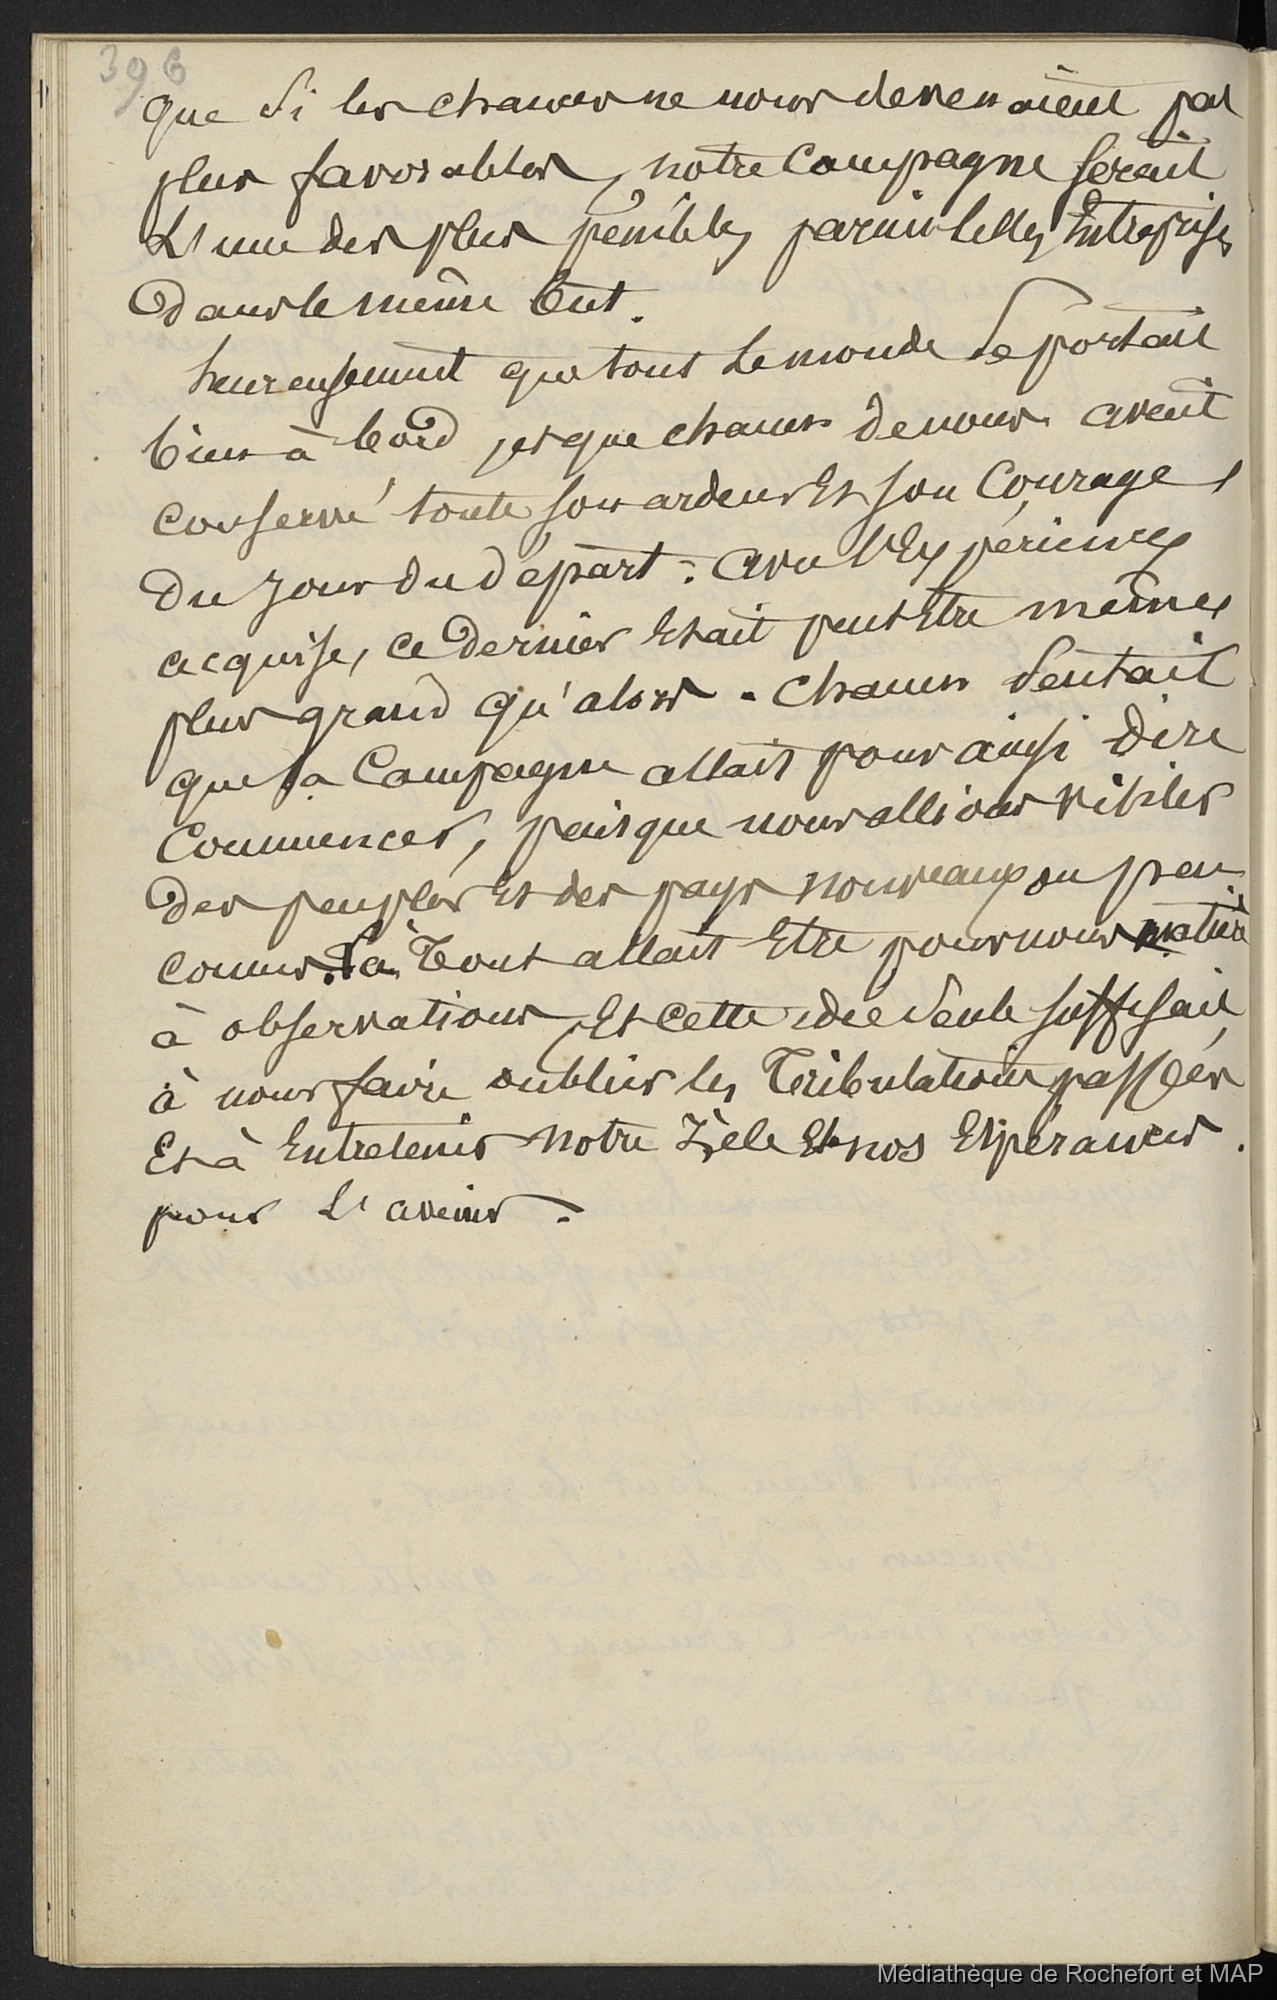 396
que si les chances ne nous devenaient pas
plus favorables, notre Campagne serait
L'une des plus pénibles parmi celles Entreprises
Dans le même but.
heureusement que tout le monde se portait
bien à bord, et que chacun de nous avait
conservé toute son ardeur Et son Courage
Du Jour du départ. avec l'Expérience
acquise, ce Dernier Etait peut Etre même
plus grand qu'alors. Chacun sentait
que la Campagne allait pour ainsi Dire
Commencer, puisque nous allions visiter
Des peuples Et des pays nouveaux ou peu
connus. Là, Tout allait Etre pour nous matière
à observations, Et cette idée seule suffisait
à nous faire oublier les Tribulations passées
Et à Entretenir notre Zèle Et nos Espérances
pour L'avenir.
Médiathèque de Rochefort et MAP